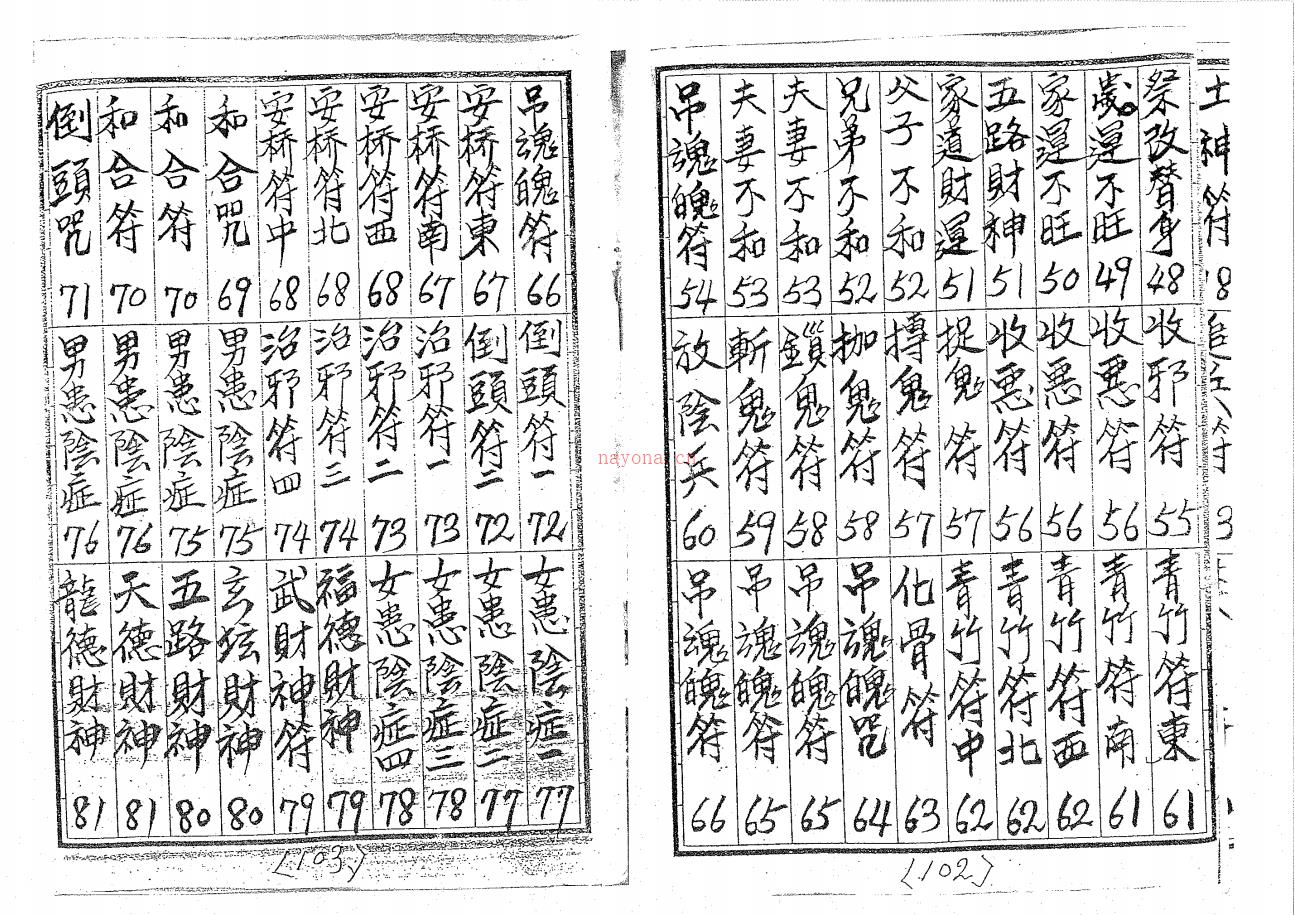 土神符 18
祭改替身 48
歲運不旺 49
家運不旺 50
五路財神 51
家道財運 51
父子不和 52
兄弟不和 52
夫妻不和 53
夫妻不和 53
吊魂魄符 54
收邪符 55
收惡符 56
收惡符 56
收惡符 56
捉鬼符 57
摶鬼符 57
枷鬼符 58
鎖鬼符 58
斬鬼符 59
放陰兵 60
青竹符東 61
青竹符南 61
青竹符西 62
青竹符北 62
青竹符中 62
化骨符 63
吊魂魄咒 64
吊魂魄符 65
吊魂魄符 65
吊魂魄符 66
〈102〉
吊魂魄符 66
安桥符東 67
安桥符南 67
安桥符西 68
安桥符北 68
安桥符中 68
和合咒 69
和合符 70
和合符 70
倒頭咒 71
倒頭符一 72
倒頭符二 72
治邪符一 73
治邪符二 73
治邪符三 74
治邪符四 74
男患陰症 75
男患陰症 75
男患陰症 76
男患陰症 76
女患陰症一 77
女患陰症二 77
女患陰症三 78
女患陰症四 78
福德財神 79
武財神符 79
玄玹財神 80
五路財神 80
天德財神 81
龍德財神 81
〈103〉
nayona.cn